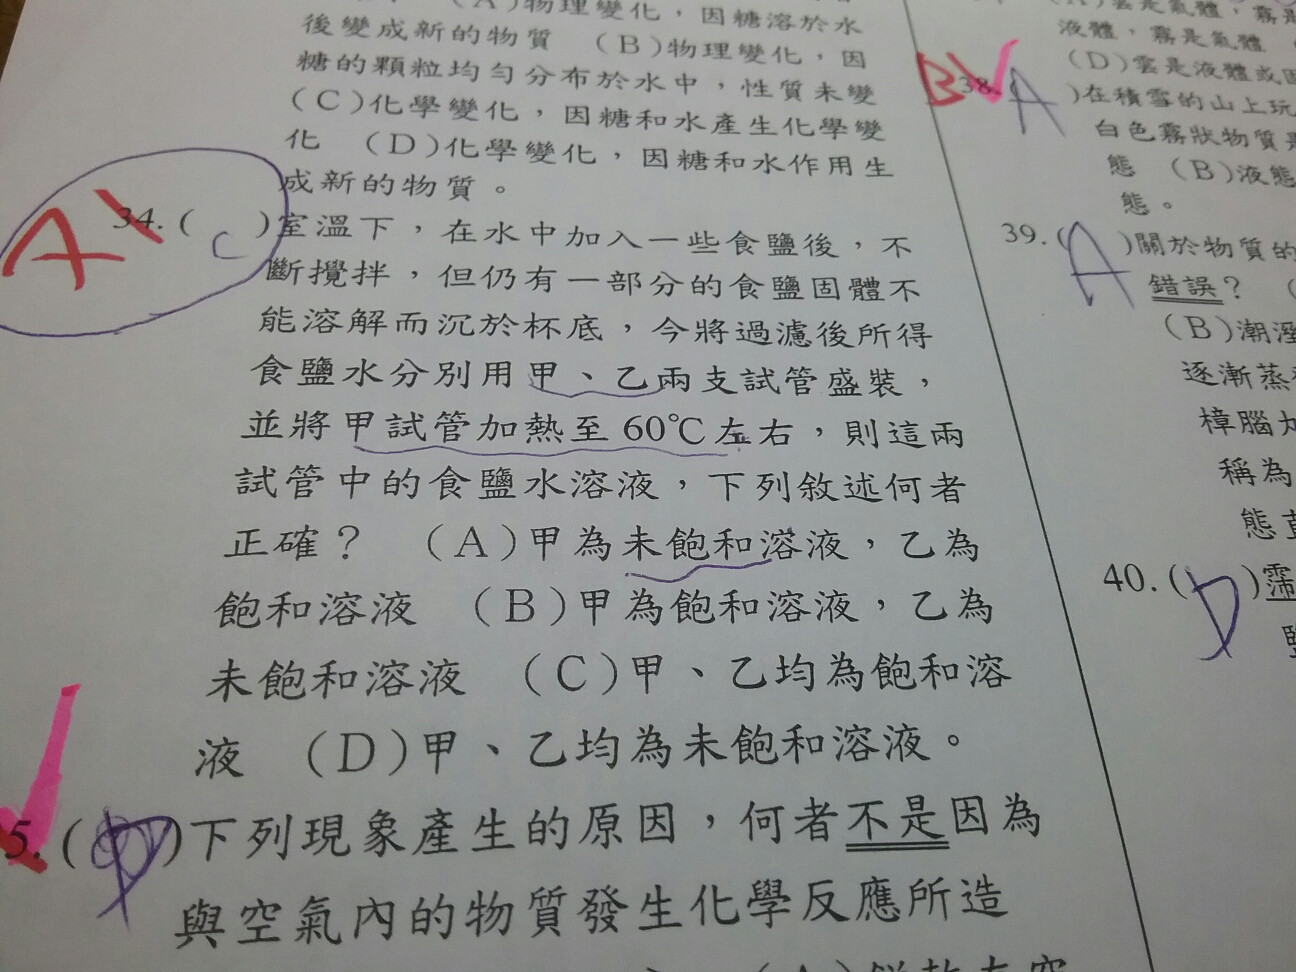 (A)物理變化，因糖溶於水
後變成新的物質 (B)物理變化，因
糖的顆粒均勻分布於水中，性質未變
(C)化學變化，因糖和水產生化學變
化 (D)化學變化，因糖和水作用生
成新的物質。
A 34.( C )室溫下，在水中加入一些食鹽後，不
斷攪拌，但仍有一部分的食鹽固體不
能溶解而沉於杯底，今將過濾後所得
食鹽水分別用甲、乙兩支試管盛裝，
並將甲試管加熱至 60℃左右，則這兩
試管中的食鹽水溶液，下列敘述何者
正確？ (A)甲為未飽和溶液，乙為
飽和溶液 (B)甲為飽和溶液，乙為
未飽和溶液 (C)甲、乙均為飽和溶
液 (D)甲、乙均為未飽和溶液。
5.( D )下列現象產生的原因，何者不是因為
與空氣內的物質發生化學反應所造
(A)雲是氣體，霧是
液體，霧是氣體
(D)雲是液體或固
B 38.( A )在積雪的山上玩
白色霧狀物質是
態 (B)液態
態。
39.( A )關於物質的
錯誤？
(B)潮溼
逐漸蒸
樟腦丸
稱為
態直
40.( D )